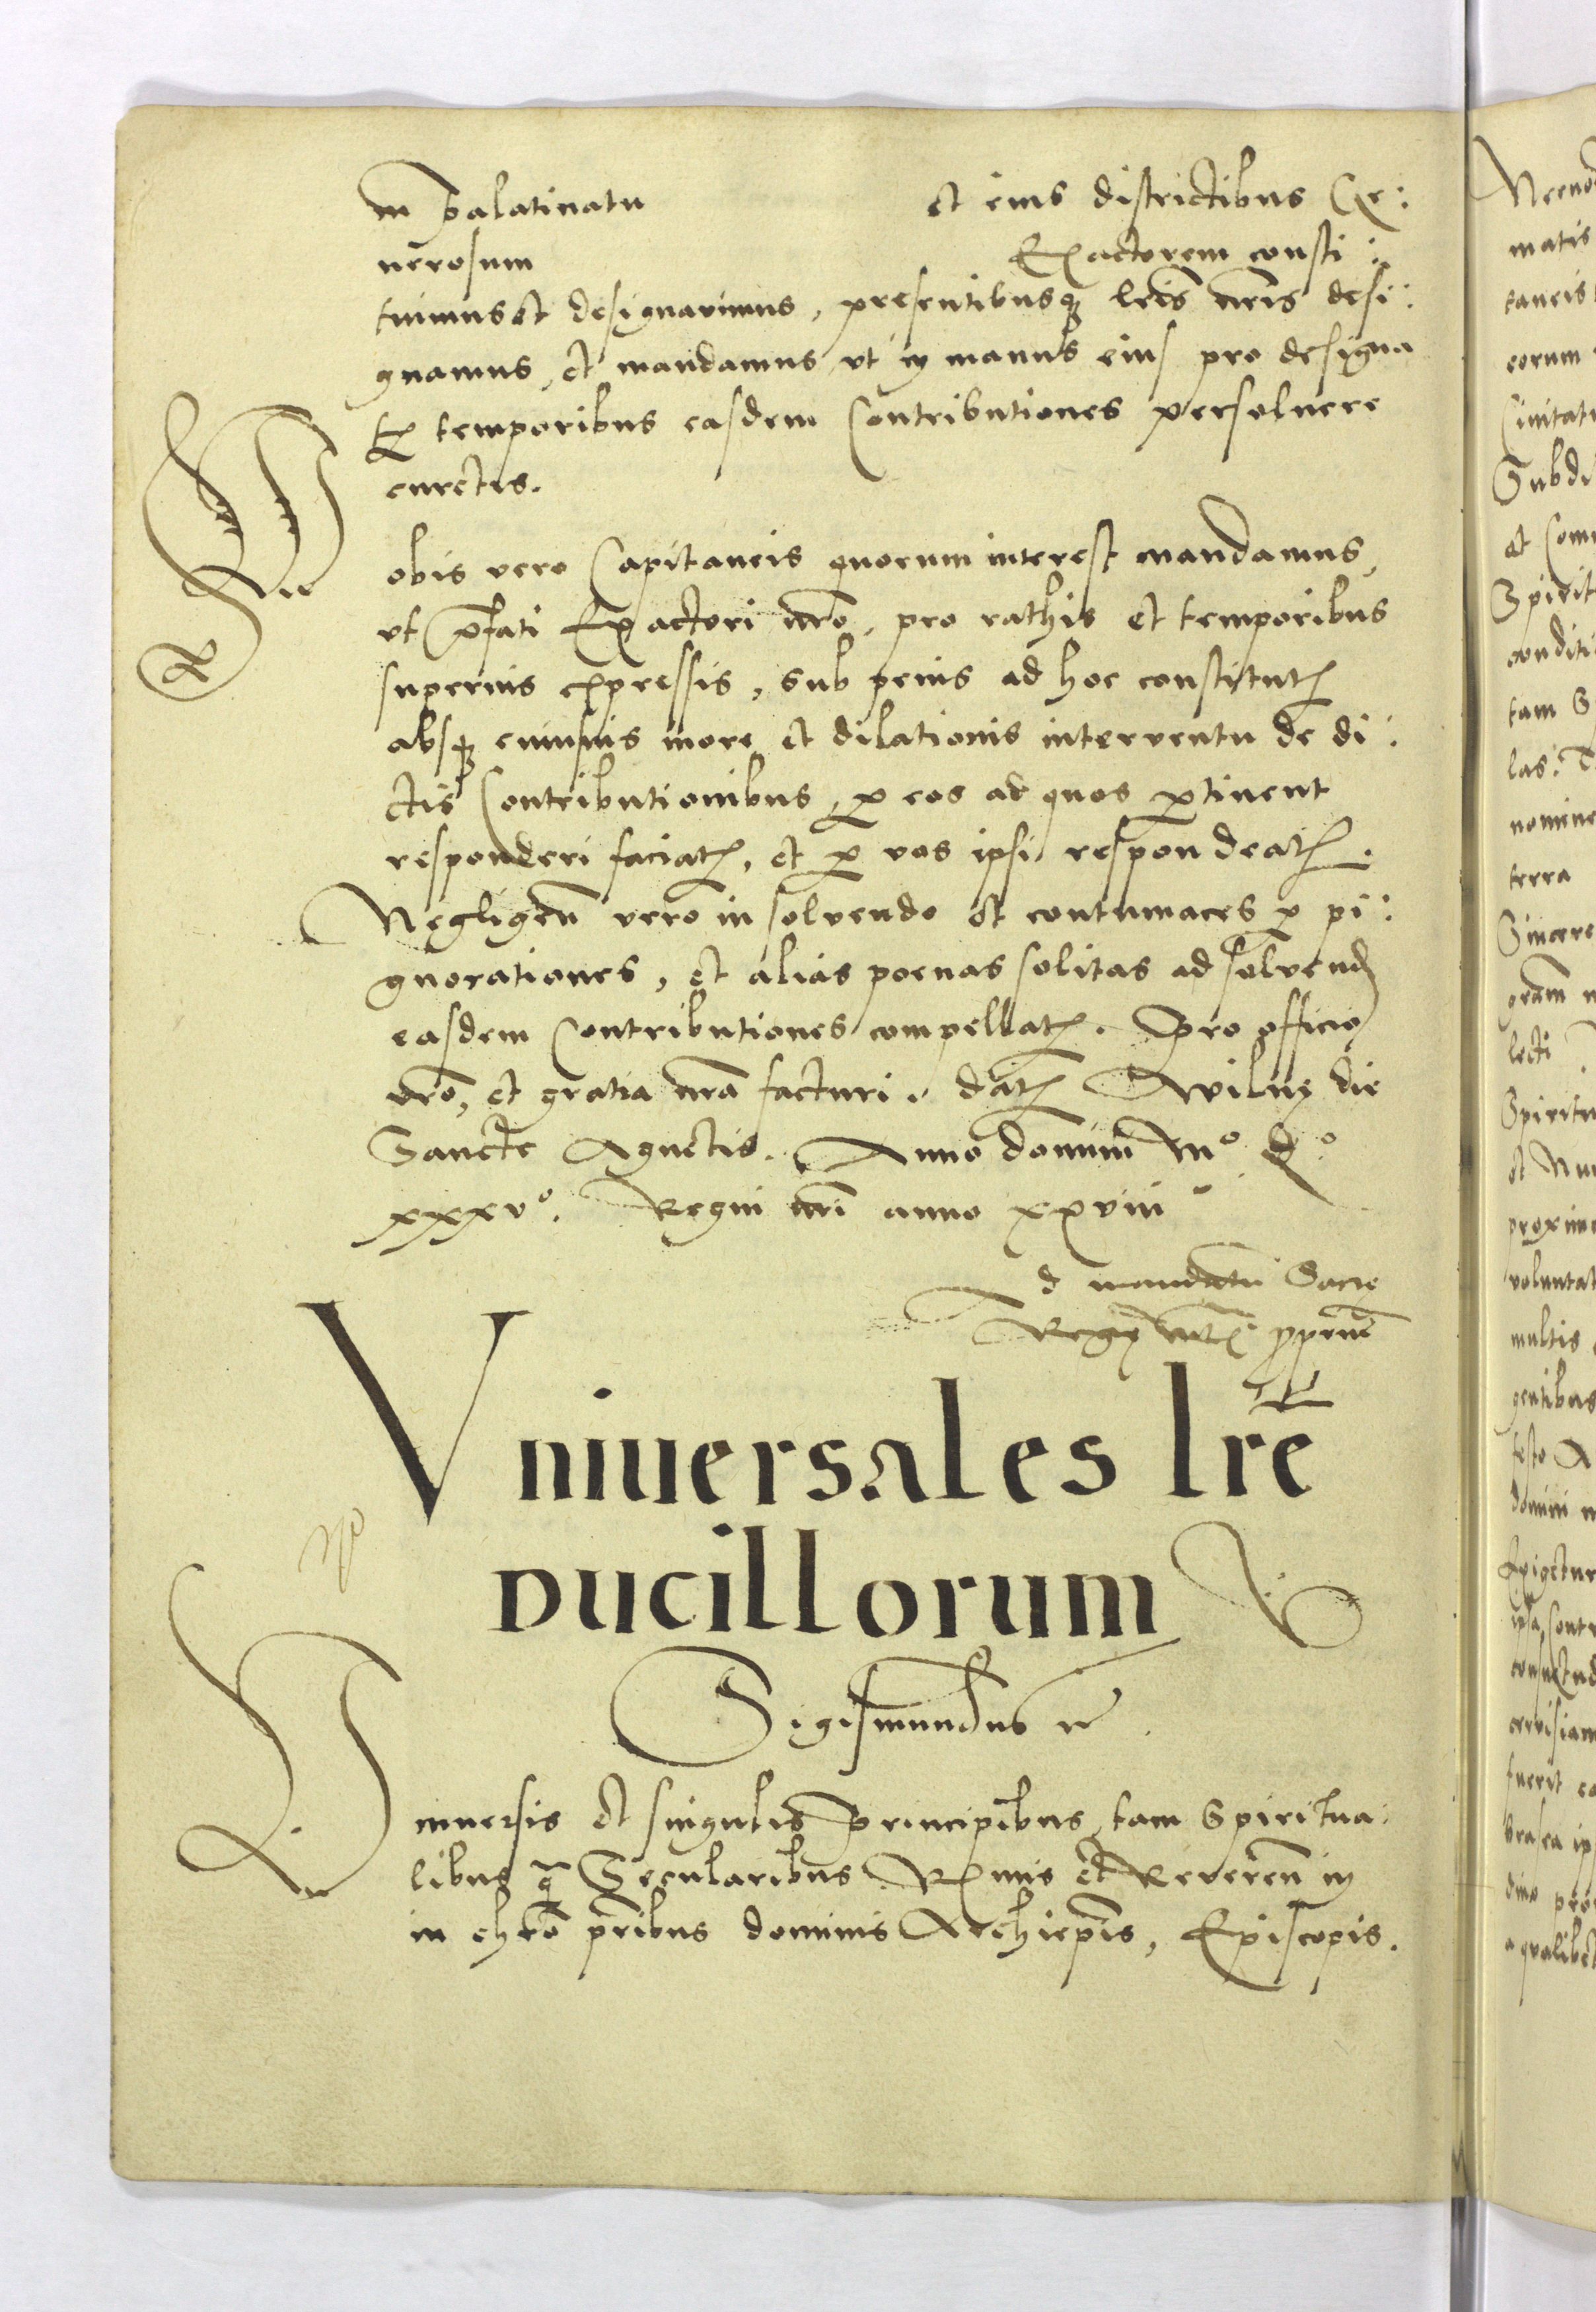 in Palatinatu et eius districtibus Ge:
nerosum Exactorem consti:
tuimus et designavimus, presentibusq lris nris desi:
gnamus, et mandamus vt in manus eius pro designa
tis temporibus easdem Contributiones persoluere
curetis.
Vobis vero Capitaneis quorum interest mandamus,
vt pfati Exactori nro, pro rathis et temporibus
superius expressis, sub penis ad hoc constitutis
absq cuiusuis more et dilationis interventu de di:
ctis Contributionibus, p eos ad quos ptinent
responderi faciatis, et p vos ipsi respondeatis.
Negligen vero in solvendo et contumaces p pi:
gnorationes, et alias poenas solitas ad solvend
easdem Contributiones compellatis. Pro officio
vro, et gratia nra facturi. datis Wilnę die
Sancte Agnetis. Anno domini Mº. dº.
xxxvº. Regni nri anno xxviiiº
Ad mandatu Sacrę
Regię mtis ppriu
Vniuersales lre
Ducillorum
Sigismundus rc.
Vniuersis et singulis Principibus, tam Spiritua:
libus q Secularibus Rmis et Reveren in
in chro pribus dominis Archiepis, Episcopis.
matis
eorum
Subdi
et Com
Spirit
conditi
tam S
las.
nomine
terra
Sincere
gram n
lecti
Spiritu
proxime
voluntat
multis
gentibus
festo A
domini n
ipsa Contr
fuerit
a qualibet